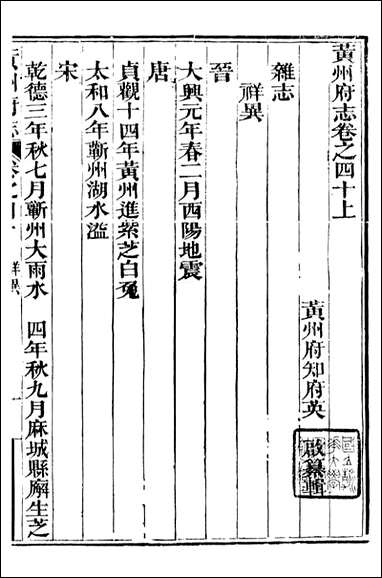 黃州府志卷之四十上
黃州府知府英啟纂輯
雜志
祥異
晉
大興元年春二月西陽地震
唐
貞觀十四年黃州進紫芝白兔
太和八年蘄州湖水溢
宋
乾德三年秋七月蘄州大雨水 四年秋九月麻城縣廨生芝
黃州府志 卷之四十 祥異 一